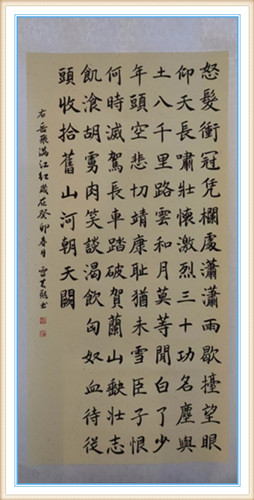 怒髮衝冠凭欄處瀟瀟雨歇擡望眼
仰天長嘯壯懷激烈三十功名塵與
土八千里路雲和月莫等閒白了少
年頭空悲切靖康耻猶未雪臣子恨
何時滅駕長車踏破賀蘭山缺壯志
飢湌胡虜肉笑談渴飲匈奴血待從
頭收拾舊山河朝天闕
右岳飛滿江紅歲在癸卯春月